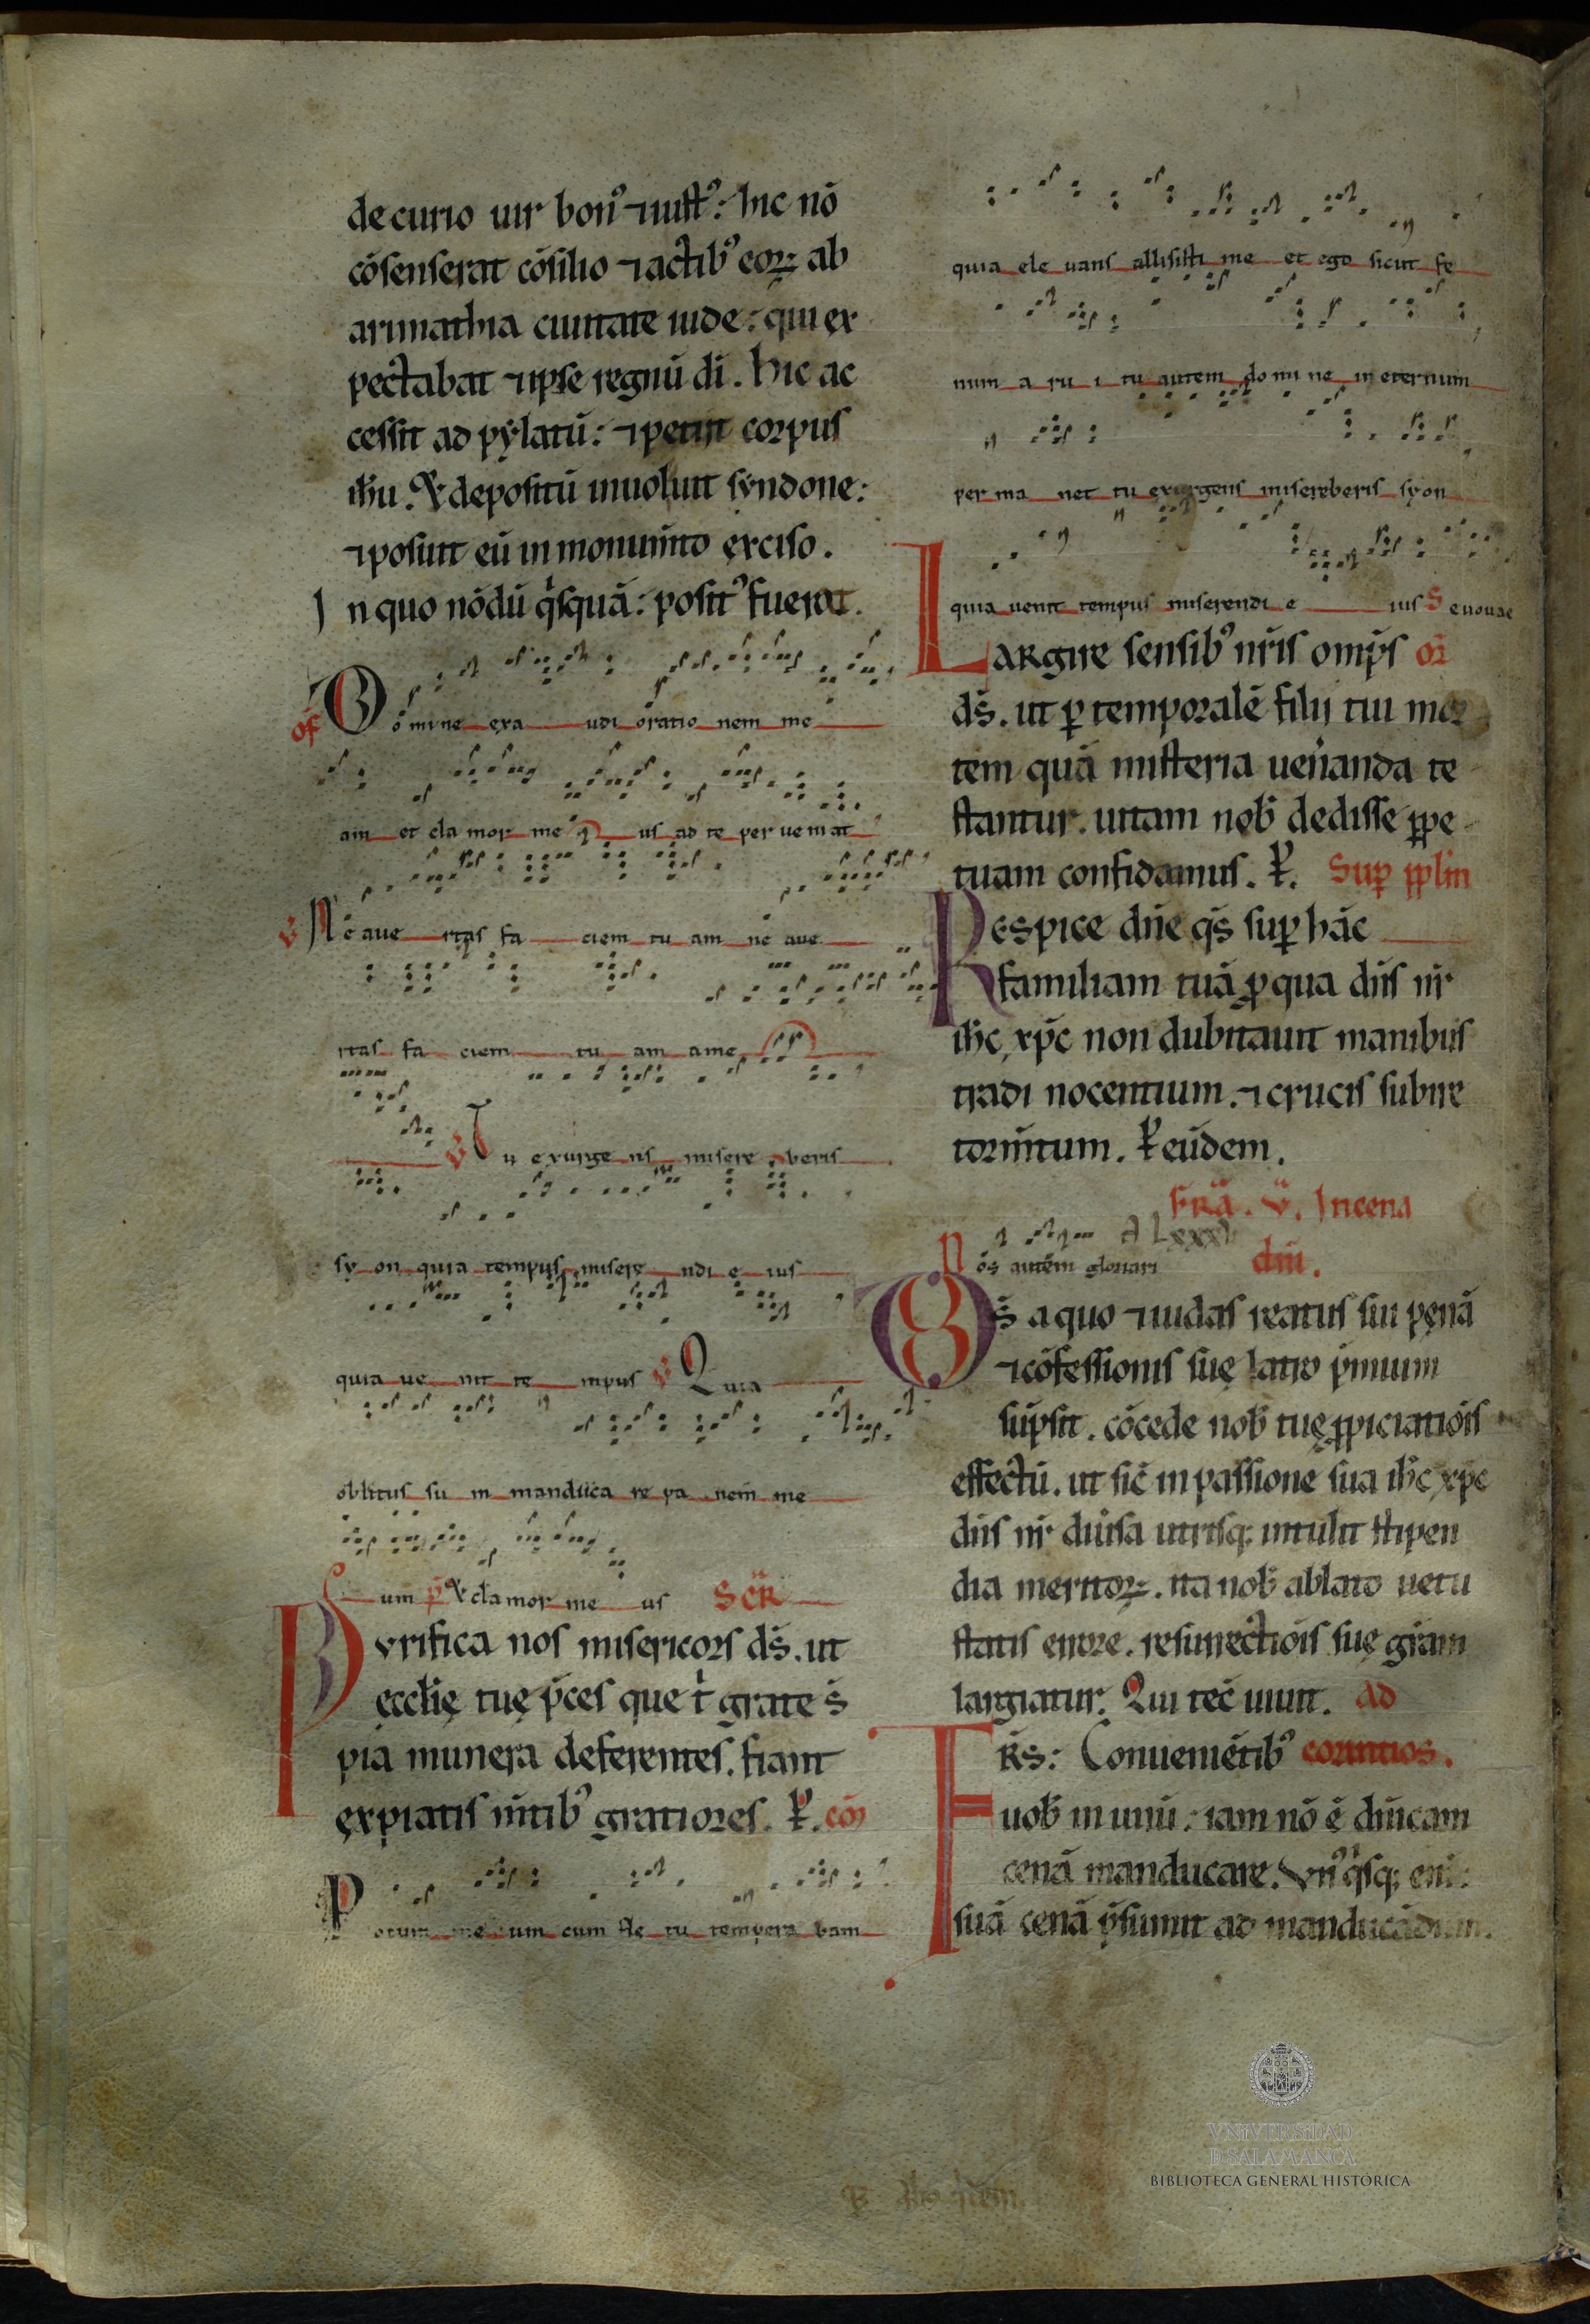 decurio uir bonꝰ ⁊ iustꝰ: hic nō
cōsenserat cōsilio ⁊ actibꝰ eoꝝ: ab
arimathia ciuitate iudę: qui ex
pectabat ⁊ ipse regnū dī. Hic ac
cessit ad pẏlatū: ⁊ petiit corpus
ih̄u. & depositū inuoluit sẏndone:
⁊ posuit eū in monum̄to exciso.
In quo nōdū qͥsquā: positꝰ fuerat.
of̄ Domine exa udi oratio nem me
am et cla mor me us ad te per ueniat
V Ne aue rtas fa ciem tu am ne aue
rtas fa ciem tu am ame
V Tu exurge ns misere beris
sy on quia tempus misere ndi e ius
quia ue nit te mpus V Quia
oblitus su m manduca re pa nem me
um p̄ & cla mor me us Scr̄
Purifica nos misericors ds̄. ut
ęcclię tuę p̄ces que t̄ grate s̄
pia munera deferentes. fiant
expiatis m̄tibꝰ gratiores. P̄. cō
Potum me um cum fle tu tempera bam
quia ele uans allisisti me et ego sicut fe
num a ru i tu autem do mi ne in eternum
per ma net tu exurgens misereberis syon
quia uenit tempus miserendi e ius S euouae
Largire sensibꝰ nr̄is omp̄s or̄
ds̄. ut ꝑ temporalē filii tui mor
tem quā misteria uen̄anda te
stantur. uitam nob̄ dedisse ꝑpe
tuam confidamus. P̄. Suꝑ ꝑplm̄
Respice dn̄e qs̄ suꝑ hāc
familiam tuā ꝓ qua dn̄s nr̄
ih̄c xp̄c non dubitauit manibus
tradi nocentium. ⁊ crucis subire
torm̄tum. P̄ eūdem.
Fr̄a. V. In cena
Nos autēm gloriari dn̄i.
Ds̄ a quo ⁊ iudas reatus sui penā
⁊ cōfessionis suę latro p̄mium
sūpsit. cōcede nob̄ tuę ꝓpiciatiōis
effectū. ut sic̄ in passione sua ih̄c xp̄c
dn̄s nr̄ diūsa utrisq; intulit stipen
dia meritoꝝ. ita nob̄ ablato uetu
statis errore. resurrectiōis suę gr̄am
largiatur. Qui tec̄ uiuit. Ad
Fr̄s: Conueniētibꝰ corintios.
uob̄ in unū: iam nō ē dn̄icam
cenā manducare. Vn̄ꝰ qͥsq; eni:
suā cenā p̄sumit ad manducādum.
VNiVERSiDAD
D SALAMANCA
BIBLIOTECA GENERAL HISTÓRICA